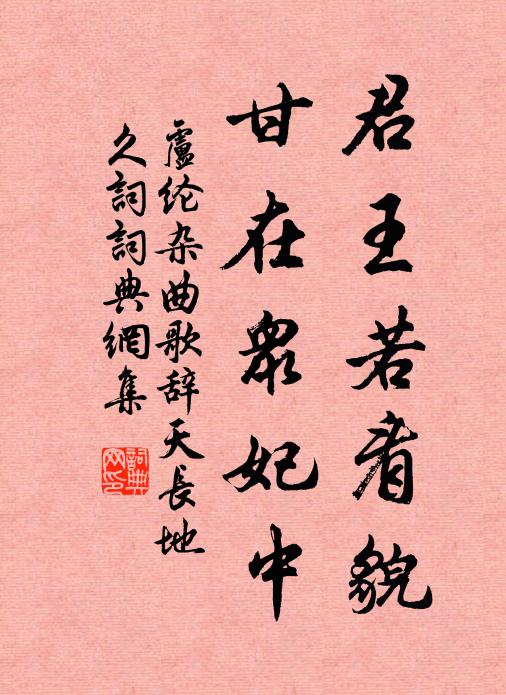 君王若看貌
甘在眾妃中
盧纶杂曲歌辞天長地
久詞詞典網集
詞典
网印